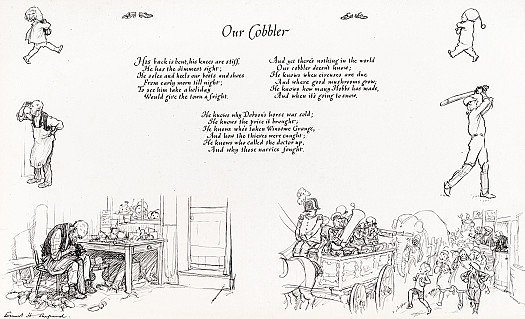 Our Cobbler
His back is bent, his knees are stiff,
He has the dimmest sight;
He soles and heels our boots and shoes
From early morn till night;
To see him take a holiday
Would give the town a fright.
And yet there's nothing in the world
Our cobbler doesn't know;
He knows when circuses are due
And where good mushrooms grow;
He knows how many Hobbs has made,
And when it's going to snow.
He knows why Dobson's horse was sold;
He knows the price it brought;
He knows who's taken Winsome Grange,
And how the thieves were caught;
He knows who called the doctor up,
And why those navvies fought.
Ernest H. Shepard